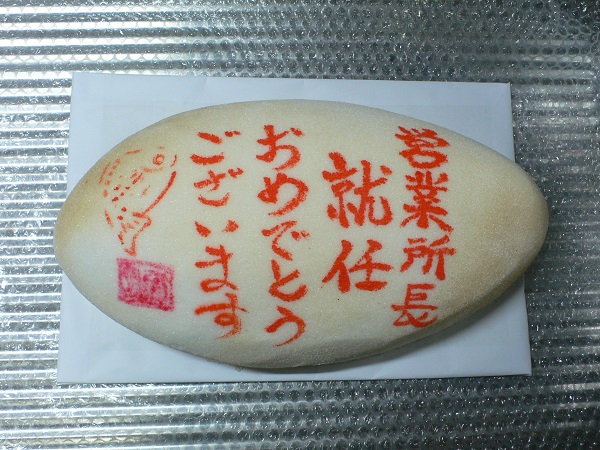 営業所長
就任
おめでとう
ございます